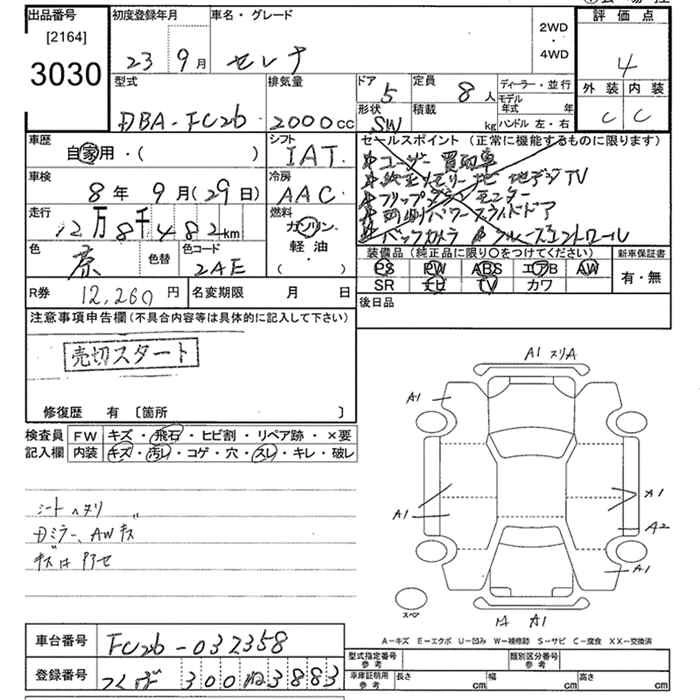 出品番号 初度登録年月 車名・グレード 2WD・4WD 評価点
[2164]
3030 23 9月 セレナ 4
型式 排気量 ドア 5 定員 8人 ディーラー・並行 外装 内装
DBA-FC26 2000cc 形状 SW 積載 kg モデル年式 年 ハンドル 左・右 C C
車歴 シフト セールスポイント(正常に機能するものに限ります)
自家用・( ) IAT ユーザー買取車
車検 冷房 ナビ 地デジTV
8年 9月(29日) AAC フリップダウンモニター
走行 燃料 両側パワースライドドア
12万8千482km ガソリン・軽油・( ) バックカメラ クルーズコントロール
色 茶 色替 色コード 2AE 装備品(純正品に限り○をつけてください) 新車保証書
PS PW ABS エアB AW 有・無
SR ナビ TV カワ
R券 12,260円 名変期限 月 日 後日品
注意事項申告欄(不具合内容等は具体的に記入して下さい)
売切スタート
修復歴 有 〔箇所 〕
検査員 FW キズ・飛石・ヒビ割・リペア跡・×要
記入欄 内装 キズ・汚レ・コゲ・穴・スレ・キレ・破レ
シートヘタリ
Dミラー、AWキズ
A1 スリA
A1
A1
A1
A2
A1
スペア
A1
A−キズ E−エクボ U−凹み W−補修跡 S−サビ C−腐食 XX−交換済
車台番号 FC26-032358 型式指定番号 参考 類別区分番号 参考
登録番号 つくば 300 ぬ 3883 車庫証明用 参考 長さ cm 幅 cm 高さ cm